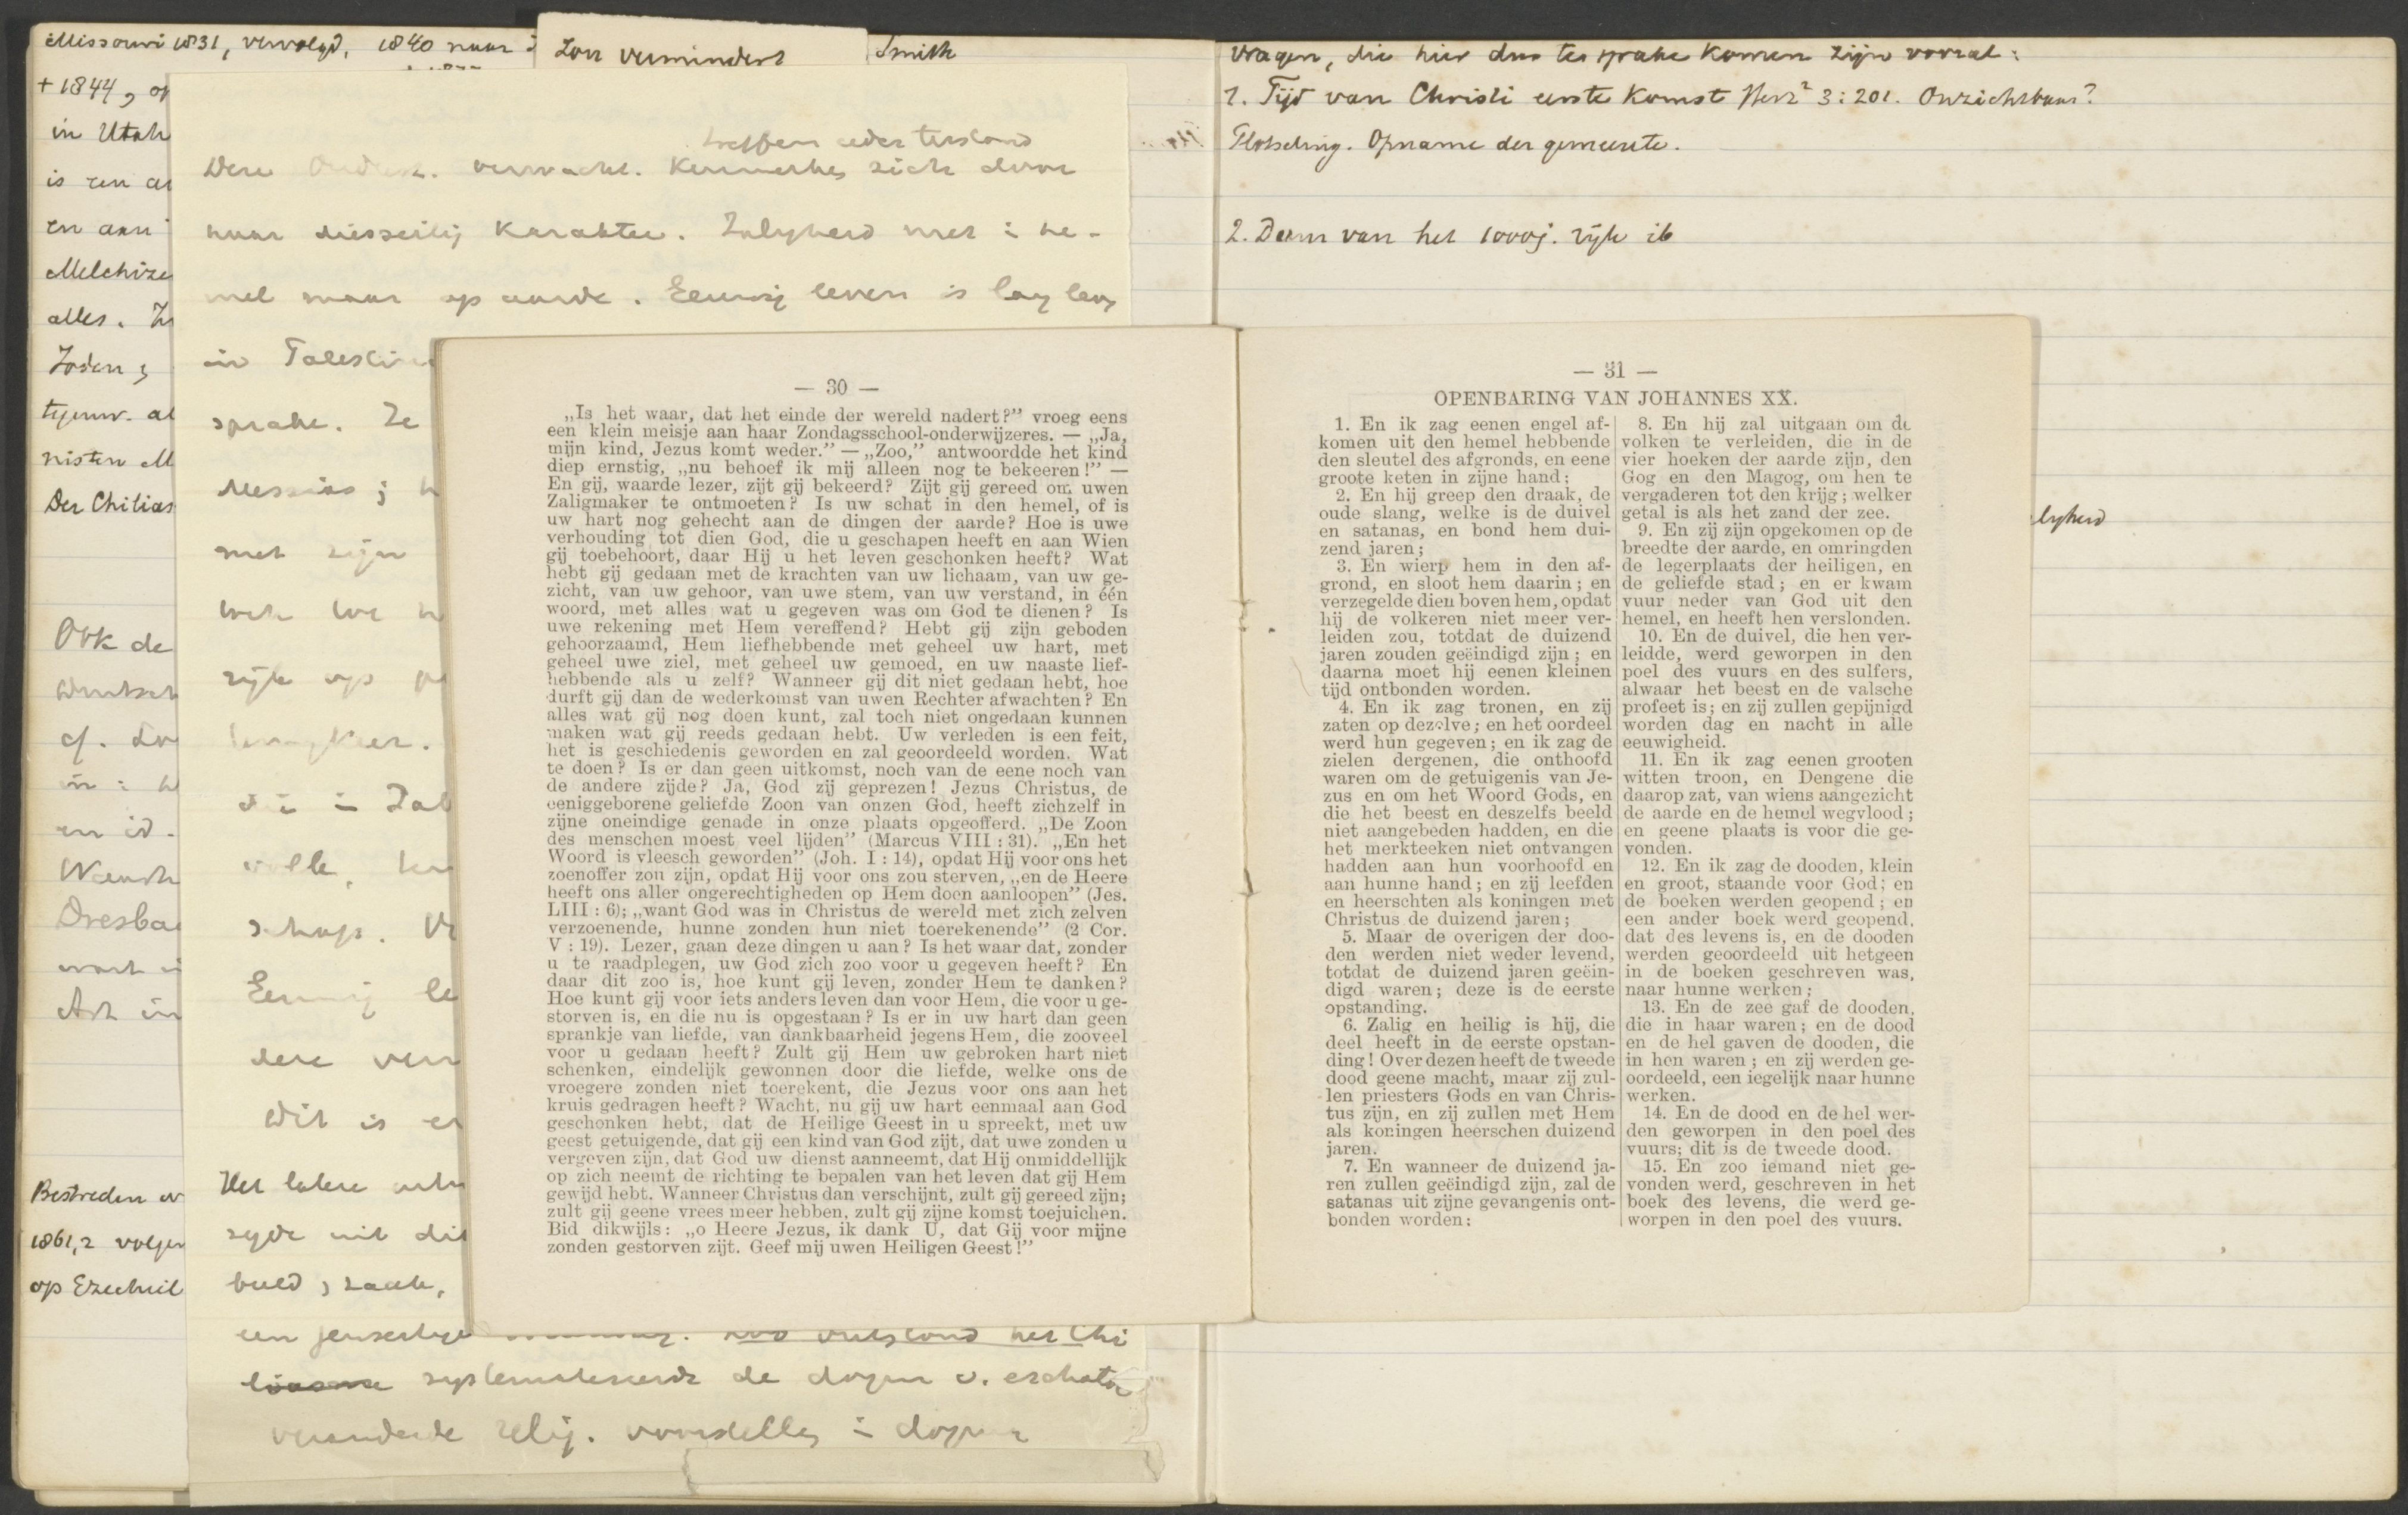 Missouri 1831, vervolgd, 1840 naar
+ 1844, op
in Utah
is een
en aan
Melchize
alles.
Joden;
tegenw. al
nisten M
Der Chilias
Ook de
cf.
en id.
Dresba
Bestreden
1861,2 volgen
op Ezechiel
Zon vermindert
Smith
verwacht. Kenmerken zich door
haar diesseitig Karakter. Zaligheid niet i he-
mel maar op aarde. Eeuwig leven is lang leven
in Palestin
sprake. Ze
Messias;
met zijn
rijk op
volle,
schap.
Eeuwig le
dere ver
Dit is er
Het latere
zijde uit dit
beeld, zaak,
een jenseitige
Zoo ontstond het Chi
systematiseerde de dogm v. eschato
veranderde relig. voorstelling i dogma
— 30 —
„Is het waar, dat het einde der wereld nadert?” vroeg eens
een klein meisje aan haar Zondagsschool-onderwijzeres. — „Ja,
mijn kind, Jezus komt weder.” — „Zoo,” antwoordde het kind
diep ernstig, „nu behoef ik mij alleen nog te bekeeren!” —
En gij, waarde lezer, zijt gij bekeerd? Zijt gij gereed om uwen
Zaligmaker te ontmoeten? Is uw schat in den hemel, of is
uw hart nog gehecht aan de dingen der aarde? Hoe is uwe
verhouding tot dien God, die u geschapen heeft en aan Wien
gij toebehoort, daar Hij u het leven geschonken heeft? Wat
hebt gij gedaan met de krachten van uw lichaam, van uw ge-
zicht, van uw gehoor, van uwe stem, van uw verstand, in één
woord, met alles wat u gegeven was om God te dienen? Is
uwe rekening met Hem vereffend? Hebt gij zijn geboden
gehoorzaamd, Hem liefhebbende met geheel uw hart, met
geheel uwe ziel, met geheel uw gemoed, en uw naaste lief-
hebbende als u zelf? Wanneer gij dit niet gedaan hebt, hoe
durft gij dan de wederkomst van uwen Rechter afwachten? En
alles wat gij nog doen kunt, zal toch niet ongedaan kunnen
maken wat gij reeds gedaan hebt. Uw verleden is een feit,
het is geschiedenis geworden en zal geoordeeld worden. Wat
te doen? Is er dan geen uitkomst, noch van de eene noch van
de andere zijde? Ja, God zij geprezen! Jezus Christus, de
eeniggeborene geliefde Zoon van onzen God, heeft zichzelf in
zijne oneindige genade in onze plaats opgeofferd. „De Zoon
des menschen moest veel lijden” (Marcus VIII : 31). „En het
Woord is vleesch geworden” (Joh. I : 14), opdat Hij voor ons het
zoenoffer zou zijn, opdat Hij voor ons zou sterven, „en de Heere
heeft ons aller ongerechtigheden op Hem doen aanloopen” (Jes.
LIII : 6); „want God was in Christus de wereld met zich zelven
verzoenende, hunne zonden hun niet toerekenende” (2 Cor.
V : 19). Lezer, gaan deze dingen u aan? Is het waar dat, zonder
u te raadplegen, uw God zich zoo voor u gegeven heeft? En
daar dit zoo is, hoe kunt gij leven, zonder Hem te danken?
Hoe kunt gij voor iets anders leven dan voor Hem, die voor u ge-
storven is, en die nu is opgestaan? Is er in uw hart dan geen
sprankje van liefde, van dankbaarheid jegens Hem, die zooveel
voor u gedaan heeft? Zult gij Hem uw gebroken hart niet
schenken, eindelijk gewonnen door die liefde, welke ons de
vroegere zonden niet toerekent, die Jezus voor ons aan het
kruis gedragen heeft? Wacht, nu gij uw hart eenmaal aan God
geschonken hebt, dat de Heilige Geest in u spreekt, met uw
geest getuigende, dat gij een kind van God zijt, dat uwe zonden u
vergeven zijn, dat God uw dienst aanneemt, dat Hij onmiddellijk
op zich neemt de richting te bepalen van het leven dat gij Hem
gewijd hebt. Wanneer Christus dan verschijnt, zult gij gereed zijn;
zult gij geene vrees meer hebben, zult gij zijne komst toejuichen.
Bid dikwijls: „o Heere Jezus, ik dank U, dat Gij voor mijne
zonden gestorven zijt. Geef mij uwen Heiligen Geest!”
vragen, die hier dus ter sprake komen zijn vooral:
1. Tijd van Christi eerste Komst Herz² 3:201. Onzichtbaar?
Plotseling. Opname der gemeente.
2. Duur van het 1000j. rijk ib
— 31 —
OPENBARING VAN JOHANNES XX.
1. En ik zag eenen engel af-
komen uit den hemel hebbende
den sleutel des afgronds, en eene
groote keten in zijne hand;
2. En hij greep den draak, de
oude slang, welke is de duivel
en satanas, en bond hem dui-
zend jaren;
3. En wierp hem in den af-
grond, en sloot hem daarin; en
verzegelde dien boven hem, opdat
hij de volkeren niet meer ver-
leiden zou, totdat de duizend
jaren zouden geëindigd zijn; en
daarna moet hij eenen kleinen
tijd ontbonden worden.
4. En ik zag tronen, en zij
zaten op dezelve; en het oordeel
werd hun gegeven; en ik zag de
zielen dergenen, die onthoofd
waren om de getuigenis van Je-
zus en om het Woord Gods, en
die het beest en deszelfs beeld
niet aangebeden hadden, en die
het merkteeken niet ontvangen
hadden aan hun voorhoofd en
aan hunne hand; en zij leefden
en heerschten als koningen met
Christus de duizend jaren;
5. Maar de overigen der doo-
den werden niet weder levend,
totdat de duizend jaren geëin-
digd waren; deze is de eerste
opstanding.
6. Zalig en heilig is hij, die
deel heeft in de eerste opstan-
ding! Over dezen heeft de tweede
dood geene macht, maar zij zul-
len priesters Gods en van Chris-
tus zijn, en zij zullen met Hem
als koningen heerschen duizend
jaren.
7. En wanneer de duizend ja-
ren zullen geëindigd zijn, zal de
satanas uit zijne gevangenis ont-
bonden worden:
8. En hij zal uitgaan om de
volken te verleiden, die in de
vier hoeken der aarde zijn, den
Gog en den Magog, om hen te
vergaderen tot den krijg; welker
getal is als het zand der zee.
9. En zij zijn opgekomen op de
breedte der aarde, en omringden
de legerplaats der heiligen, en
de geliefde stad; en er kwam
vuur neder van God uit den
hemel, en heeft hen verslonden.
10. En de duivel, die hen ver-
leidde, werd geworpen in den
poel des vuurs en des sulfers,
alwaar het beest en de valsche
profeet is; en zij zullen gepijnigd
worden dag en nacht in alle
eeuwigheid.
11. En ik zag eenen grooten
witten troon, en Dengene die
daarop zat, van wiens aangezicht
de aarde en de hemel wegvlood;
en geene plaats is voor die ge-
vonden.
12. En ik zag de dooden, klein
en groot, staande voor God; en
de boeken werden geopend; en
een ander boek werd geopend,
dat des levens is, en de dooden
werden geoordeeld uit hetgeen
in de boeken geschreven was,
naar hunne werken;
13. En de zee gaf de dooden,
die in haar waren; en de dood
en de hel gaven de dooden, die
in hen waren; en zij werden ge-
oordeeld, een iegelijk naar hunne
werken.
14. En de dood en de hel wer-
den geworpen in den poel des
vuurs; dit is de tweede dood.
15. En zoo iemand niet ge-
vonden werd, geschreven in het
boek des levens, die werd ge-
worpen in den poel des vuurs.